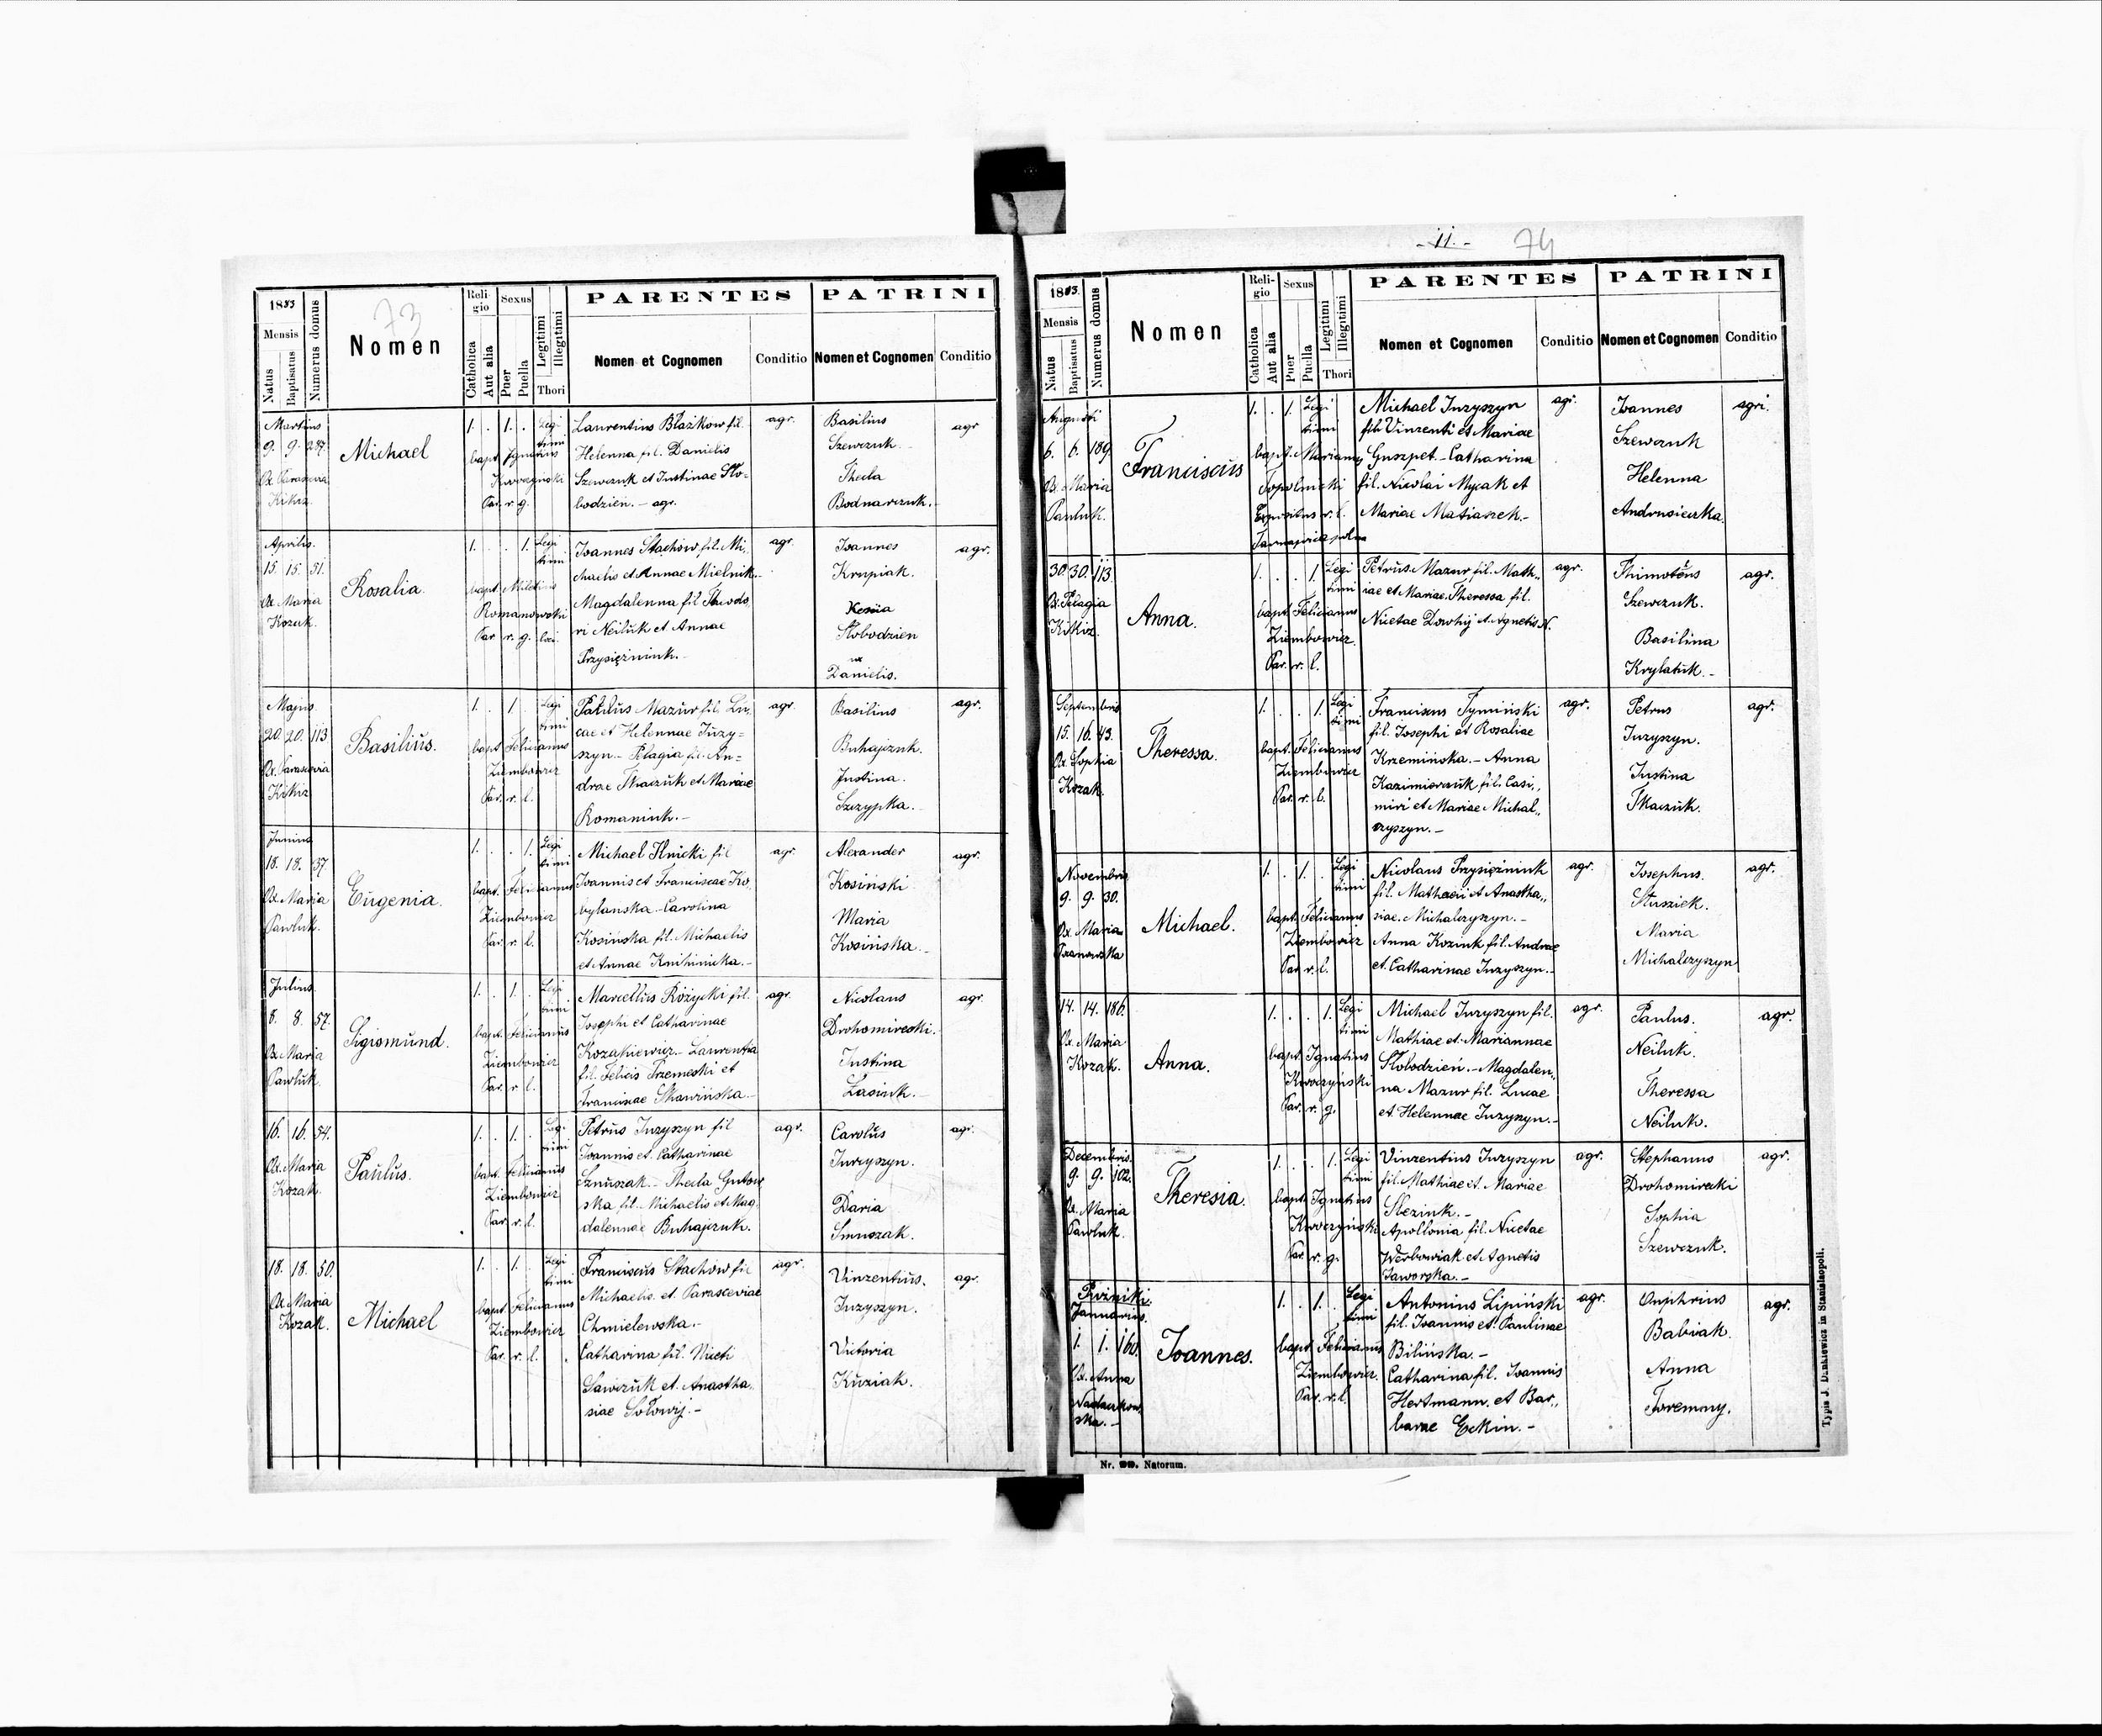 73
1883
Mensis
Natus
Baptisatus
Numerus domus
Nomen
Religio
Catholica
Aut alia
Sexus
Puer
Puella
Legitimi
Illegitimi
Thori
PARENTES
Nomen et Cognomen
Conditio
PATRINI
Nomen et Cognomen
Conditio
Martius
9. 9.
Kikirz
Michael
1. . 1. . Legi
timi
bapt. Ignatius
Kwoczyński
Par. r. g.
Laurentius Błażkow fil.
Helenna fil. Danielis
Szewczuk et Justinae Sło-
bodzien. - agr.
agr.
Basilius
Szewczuk
Thecla
Bodnarczuk.
agr
Aprilis.
15. 15. 51.
Ob. Maria
Kozak.
Rosalia.
1. . . 1. Legi
timi
bapt.
Romanowski
Par. r. g. loci
Joannes Stachów fil. Mi-
chaelis et Annae Mielnik.
Magdalenna fil Theodo
ri Neiluk et Annae
Przysiężniuk.
agr.
Joannes
Krupiak.
Slobodzien
ux
Danielis.
agr.
Majus
20. 20. 113
Ob. Parascevia
Kikirz
Basilius.
1. . 1 . Legi
timi
bapt Felicianus
Ziembowicz
Par. r. l.
Paulus Mazur fil. Lu-
cae et Helennae Juzy-
szyn - Pelagia fil. An-
drae Tkaczuk et Mariae
Romaniuk. -
agr.
Basilius
Buhajczuk.
Justina.
Szczypka.
agr.
Junius
18. 18. 37.
Ob. Maria
Pawluk.
Eugenia.
1. . . 1. Legi
timi
bapt. Felicianus
Ziembowicz
Par. r. l.
Michael Ilnicki fil
Joannis et Franciscae Ko
bylanska - Carolina
Kosińska fil. Michaelis
et Annae Knihinicka. -
agr.
Alexander
Kosiński
Maria
Kosińska.
agr.
Julius
8. 8. 57.
Ob. Maria
Pawluk.
Sigismund.
1. . 1. . Legi
timi
bapt. Felicianus
Ziembowicz
Par. r. l.
Marcellus Różycki fil.
Josephi et Catharinae
Kozakiewicz - Laurentia
fil. Felicis Przemeski et
Francisae Skawińska.
agr.
Nicolaus
Drohomirecki.
Justina
Łasiuk.
agr.
16. 16. 54.
Ob. Maria
Kozak.
Paulus.
1. . 1. . Legi
timi
bapt Felicianus
Ziembowicz
Par. r. l.
Petrus Juzyszyn fil
Joannis et Catharinae
Sznuszak - Thecla Gutow
ska fil. Michaelis et Mag
dalennae Buhajczuk.
agr.
Carolus
Juzyszyn.
Daria
Smuszak.
agr.
18. 18. 50.
Ob. Maria
Kozak.
Michael
1. . 1. . Legi
timi
bapt Felicianus
Ziembowicz
Par. r. l.
Franciscus Stachów fil
Michaelis et Parasceviae
Chmielewska. -
Catharina fil. Niceti
Sawczuk et Anastha
siae Sołowij. -
agr.
Vinzentius.
Juzyszyn.
Victoria
Kuziak.
agr.
- 11. -
74
1883.
Mensis
Natus
Baptisatus
Numerus domus
Nomen
Religio
Catholica
Aut alia
Sexus
Puer
Puella
Legitimi
Illegitimi
Thori
PARENTES
Nomen et Cognomen
Conditio
PATRINI
Nomen et Cognomen
Conditio
Augusti
6. 6. 189.
Ob. Maria
Pauluk.
Franciscus
1. . 1. Legi
timi
bapt. Marianus
Topolnicki
Expositus r. l.
Michael Juzyszyn
fil. Vinzenti et Mariae
Guszpet - Catharina
fil. Nicolai Mycak et
Mariae Matiaszek. -
agr.
Joannes
Szewczuk
Helenna
Andrusieczka.
agri.
30. 30. 113.
Ob. Pelagia
Kikirz.
Anna.
1. . . 1. Legi
timi
bapt Felicianus
Ziembowicz.
Par. r. l.
Petrus Mazur fil. Math-
iae et Mariae. Theressa fil.
Nicetae Dowhij et Agnetis N.
agr.
Thimotëus
Szewczuk.
Basilina
Krylatuk. -
agr.
Septembris
15. 16. 43.
Ob. Sophia
Kozak.
Theressa.
1. . . 1. Legi
timi
bapt Felicianus
Ziembowicz
Par. r. l.
Franciscus Tymiński
fil. Josephi et Rosaliae
Krzemińska. - Anna
Kazimierczuk fil. Casi-
miri et Mariae Michal-
czyszyn. -
agr.
Petrus
Juzyszyn.
Justina
Tkaczuk.
agr.
Novembris
9. 9. 30.
Ob. Maria
Michael.
1. . 1. . Legi
timi
bapt Felicianus
Ziembowicz
Par. r. l.
Nicolaus Przysiężniuk
fil. Mathaei et Anastha-
siae Michalczyszyn. -
Anna Koziuk fil. Andrae
et Catharinae Juzyszyn. -
agr.
Josephus.
Stusziek.
Maria
Michalczyszyn
agr.
14. 14. 186.
Ob. Maria
Kozak.
Anna.
1. . . 1. Legi
timi
bapt Ignatius
Kwoczyński
Par. r. g.
Michael Juzyszyn fil.
Mathiae et Mariannae
Słobodzień. - Magdalen-
na Mazur fil. Lucae
et Helennae Juzyszyn. -
agr.
Paulus.
Neiluk.
Theressa
Neiluk.
agr.
Decembris.
9. 9. 102.
Ob. Maria
Pawluk.
Theresia.
1. . . 1. Legi
timi
bapt Ignatius
Kwoczyński
Par. r. g.
Vinzentius Juzyszyn
fil. Mathiae et Mariae
Sleziuk. -
Apollonia fil. Nicetae
Werbowiak et Agnetis
Jaworska. -
agr.
Stephanus
Drohomirecki
Sophia
Szewczuk.
agr.
Pwżniki.
Jannarius.
1. 1. 160.
Ob. Anna
Joannes.
1. . 1. . Legi
timi
bapt Felicianus
Ziembowicz.
Par. r. l.
Antonius Lipiński
fil. Joannis et Paulinae
Bilińska. -
Catharina fil. Joannis
Hertmann et Bar-
barae Eckin. -
agr.
Onphrius
Babiak.
Anna
Foremny.
agr.
Nr. Natorum.
Typis J. Dankiewicz in Stanislaopoli.